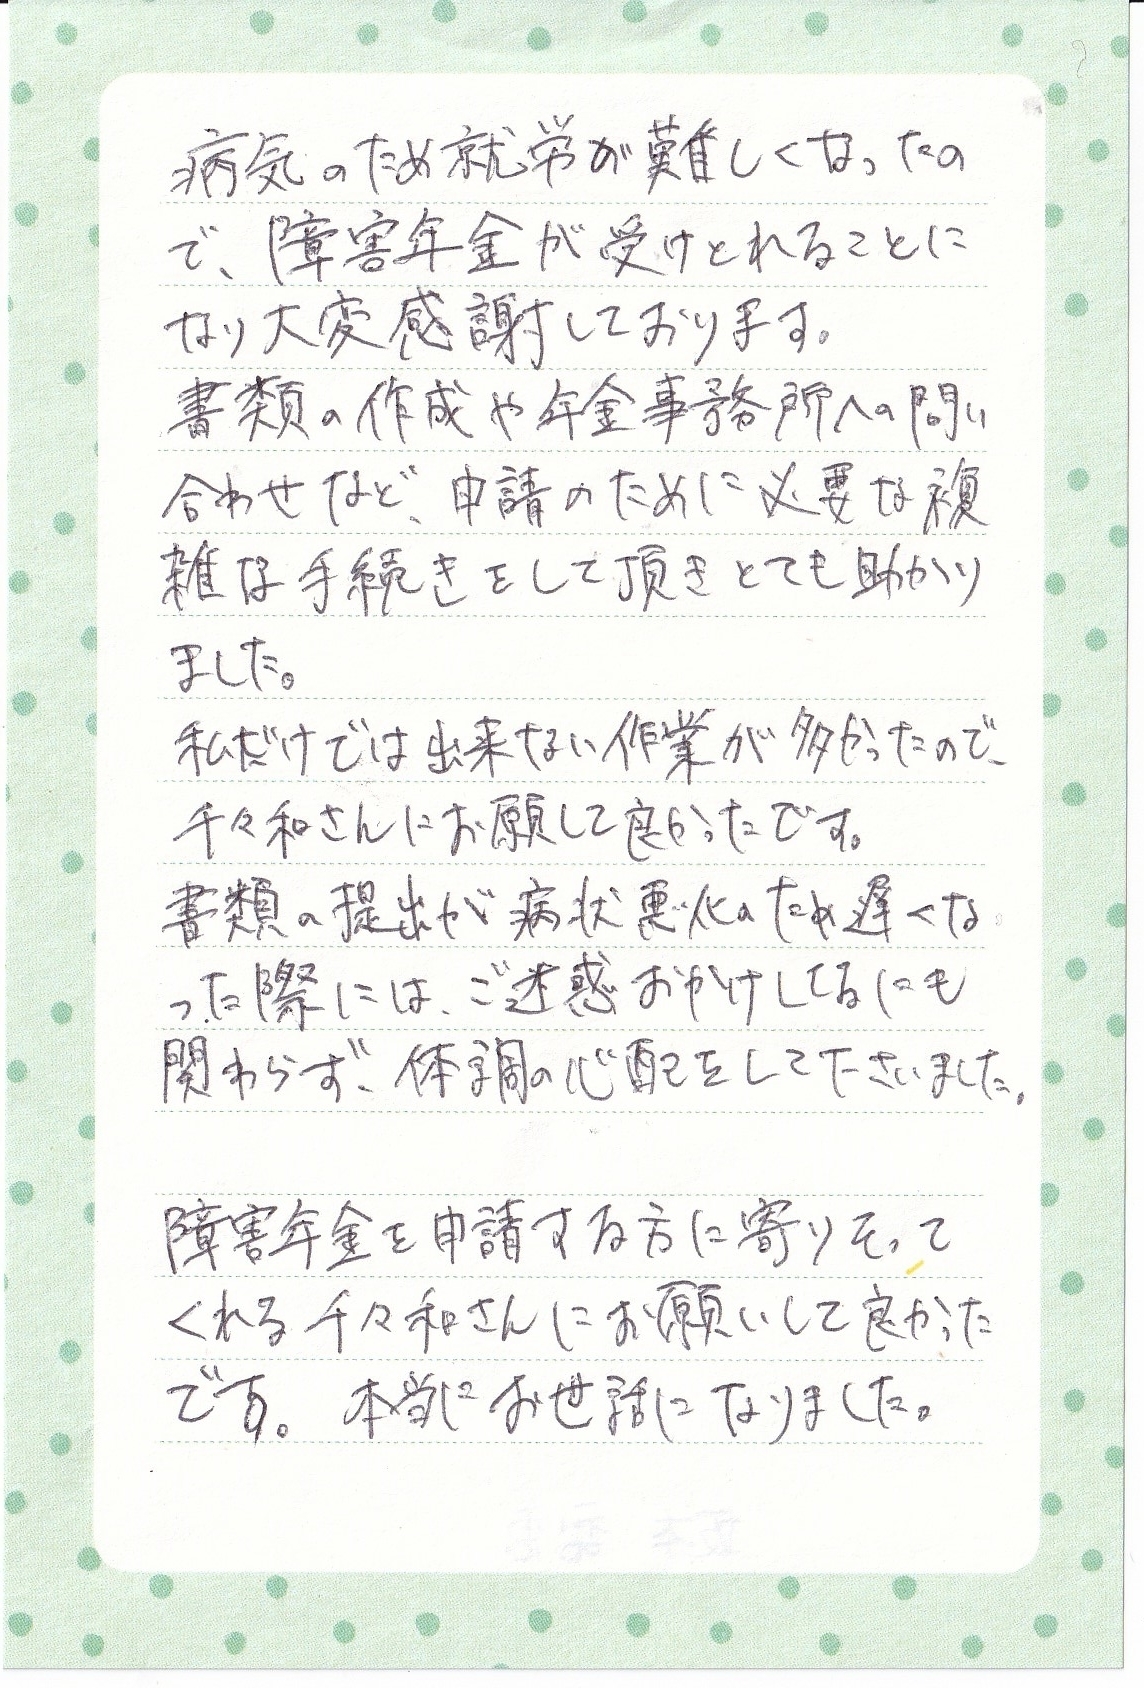 病気のため就労が難しくなったの
で、障害年金が受けとれることに
なり大変感謝しております。
書類の作成や年金事務所への問い
合わせなど、申請のために必要な複
雑な手続きをして頂きとても助かり
ました。
私だけでは出来ない作業が多かったので、
千々和さんにお願して良かったです。
書類の提出が病状悪化のため遅くな
った際には、ご迷惑おかけしてるにも
関わらず、体調の心配をして下さいました。
障害年金を申請する方に寄りそって
くれる千々和さんにお願いして良かった
です。本当にお世話になりました。